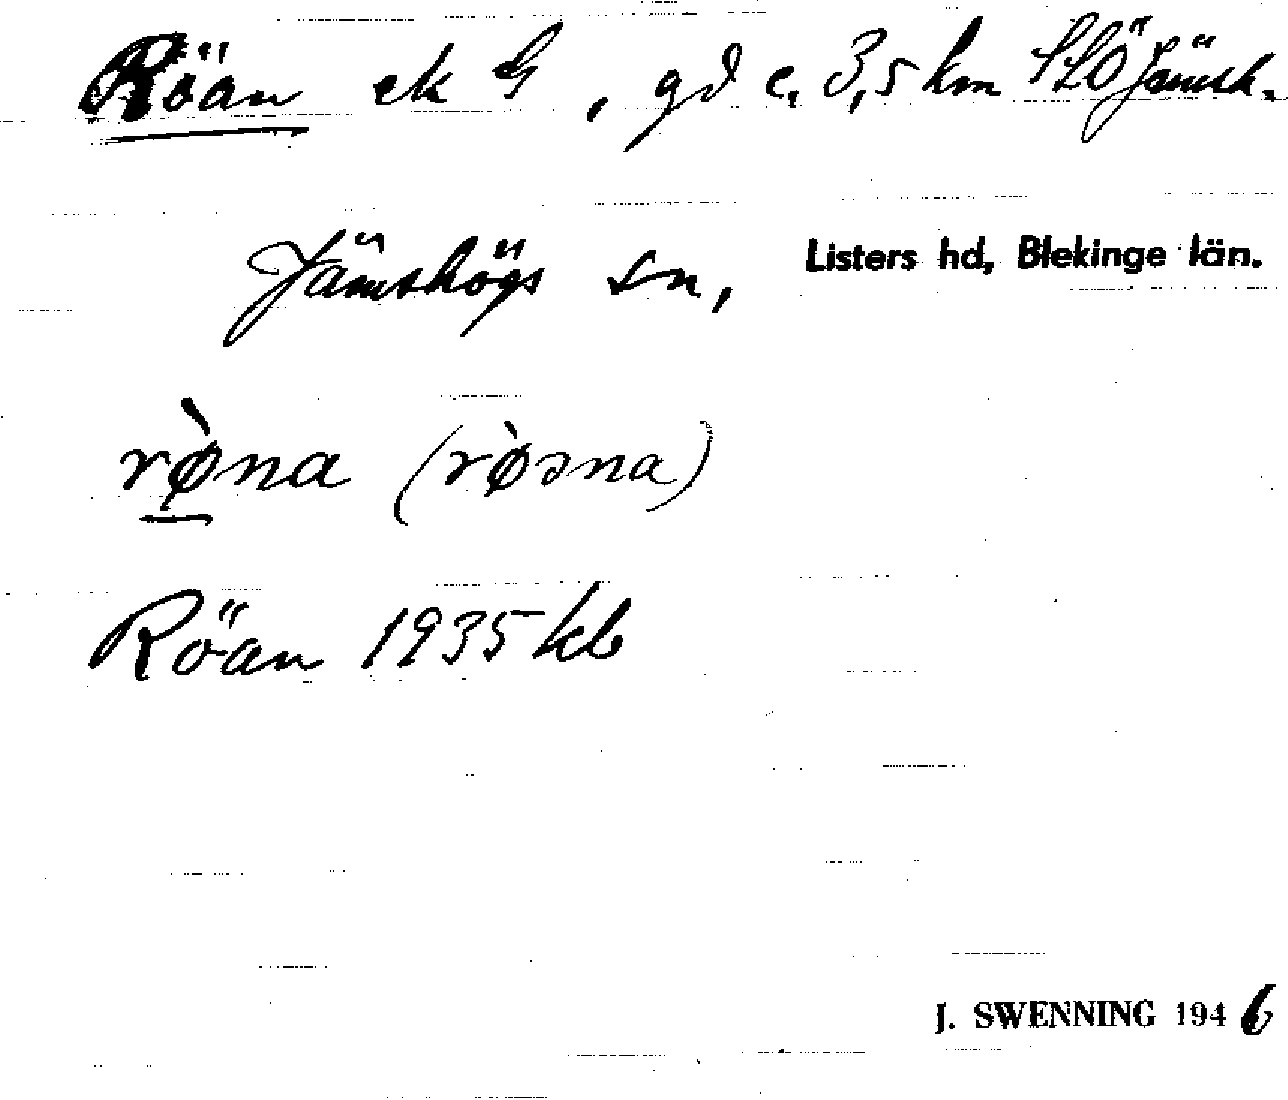 Röan ek G, gd c. 3,5 km SSÖ Jämsh.
Jämshögs sn, Listers hd, Blekinge län.
rø̀na (rø̀əna)
Röan 1935 kb
J. SWENNING 1946